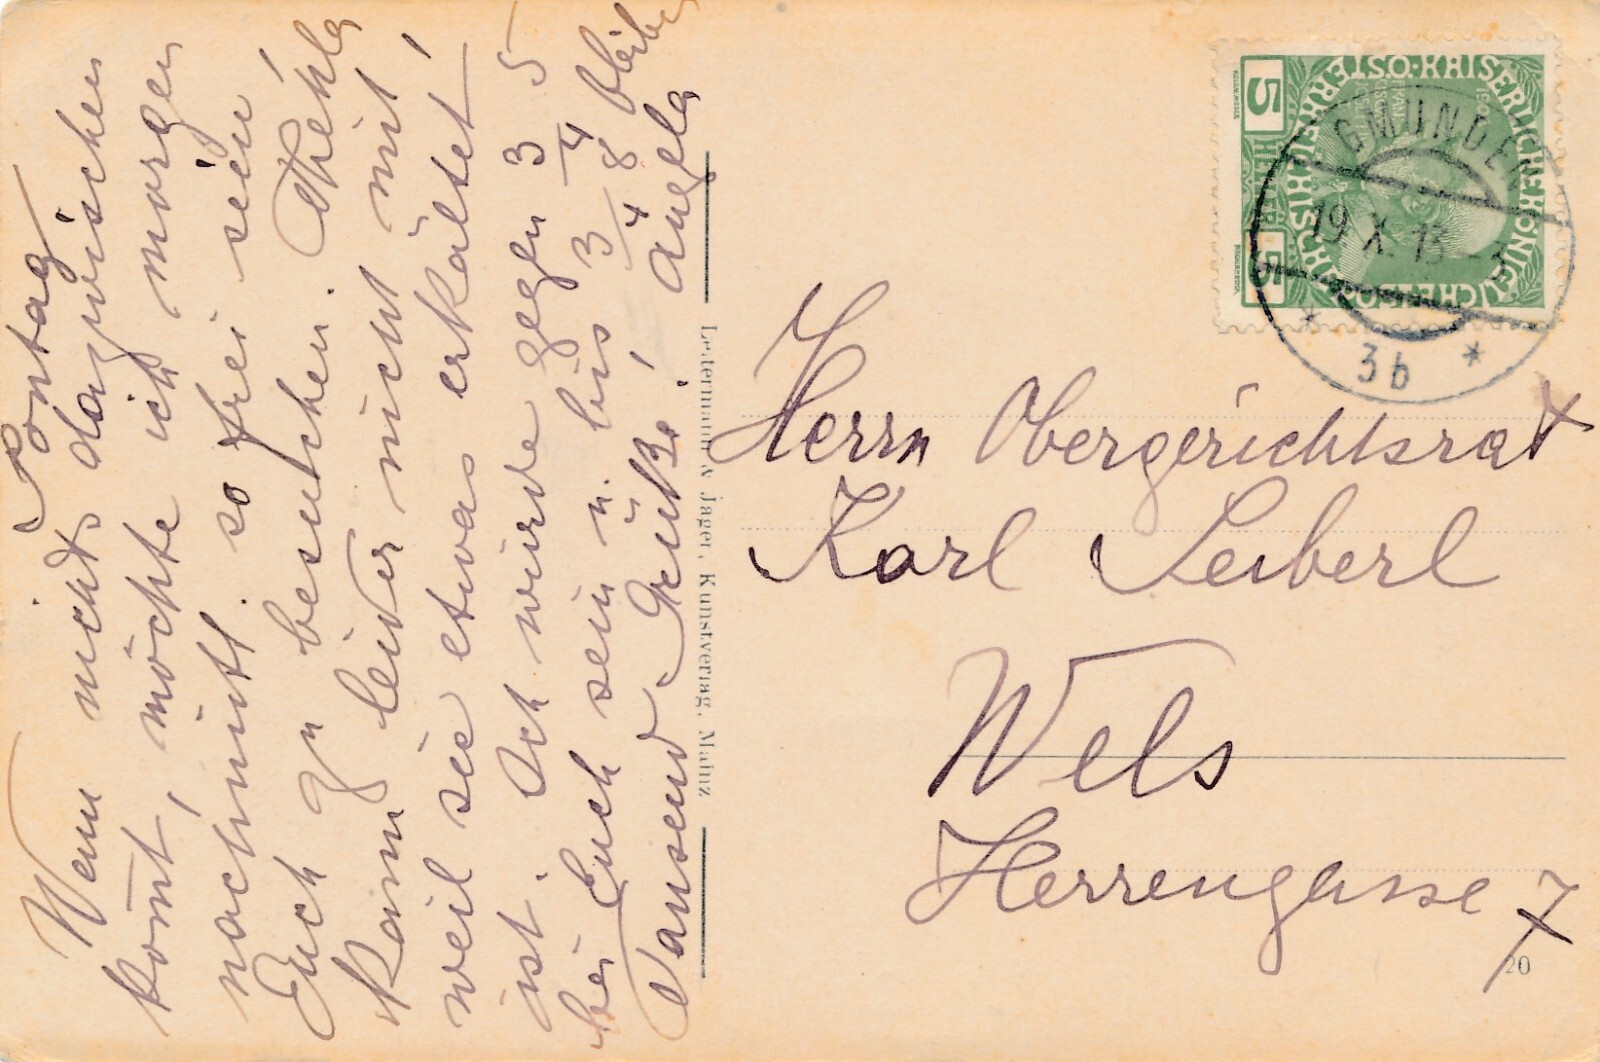 Sontag
Wenn nichts dazwischen
kom̄t, möchte ich morgen
nachmitt. so frei sein
Euch zu besuchen. Thekla
kann leider nicht mit
weil sie etwas erkältet
ist. Ich würde gegen 3/4 5
bei Euch sein u. bis 3/4 8 bleiben
Tausend Grüße! Angela
Deutermann & Jäger, Kunstverlag, Mainz
KAISERLICHE KÖNIGLICHE ÖSTERREICHISCHE
5 HELLER 5
1908
GMUNDEN
19 X 13
* 3b *
Herrn Obergerichtsrat
Karl Seiberl
Wels
Herrengasse 7
20